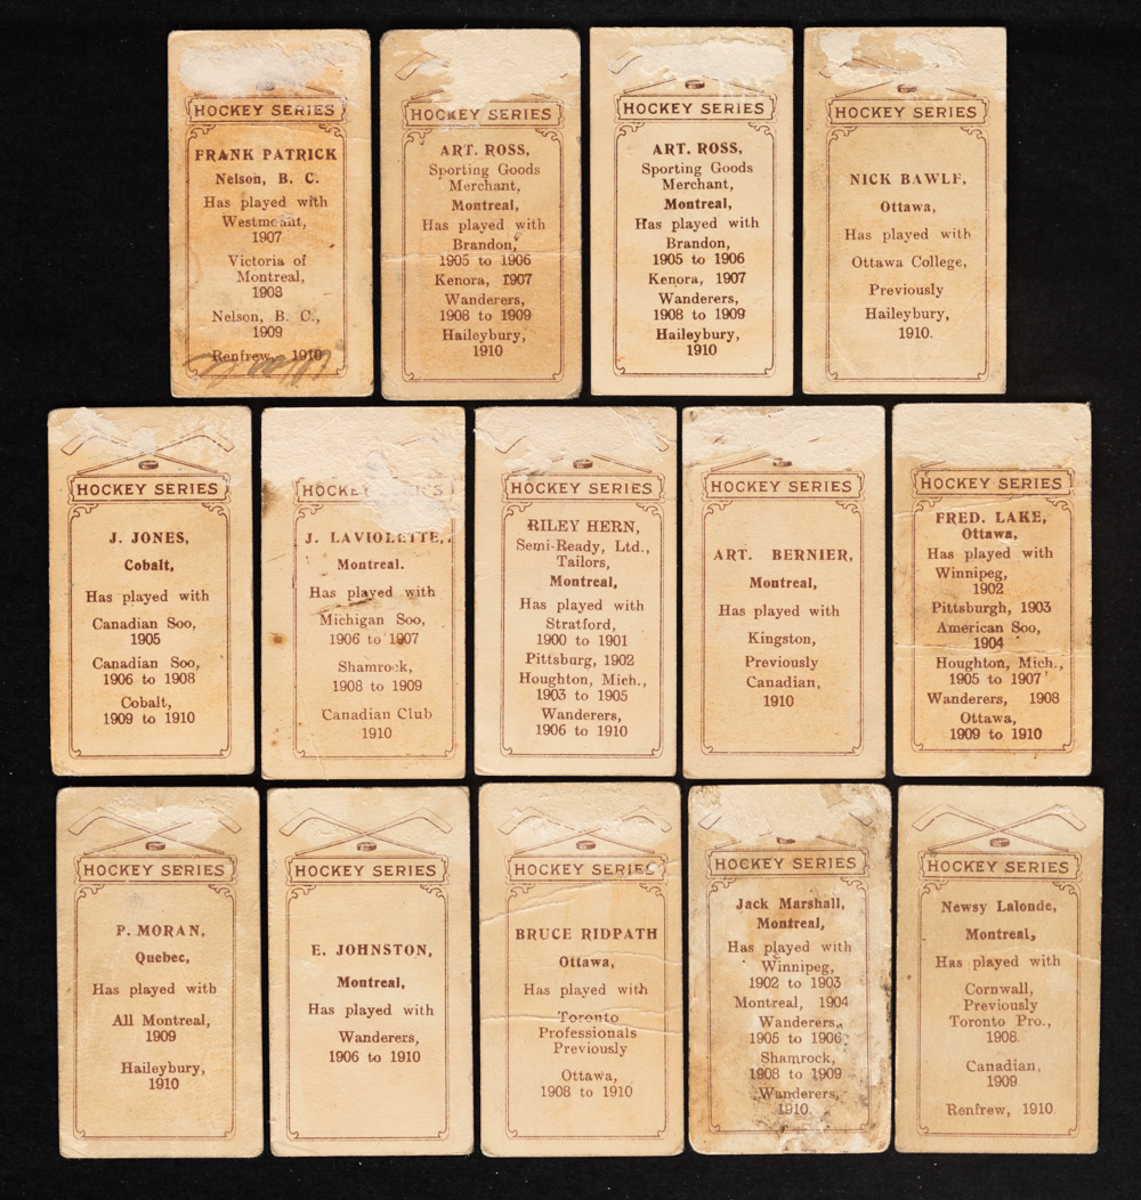 HOCKEY SERIES
FRANK PATRICK
Nelson, B. C.
Has played with
Westmount,
1907
Victoria of
Montreal,
1908
Nelson, B. C.,
1909
Renfrew, 1910
HOCKEY SERIES
ART. ROSS,
Sporting Goods
Merchant,
Montreal,
Has played with
Brandon,
1905 to 1906
Kenora, 1907
Wanderers,
1908 to 1909
Haileybury,
1910
HOCKEY SERIES
ART. ROSS,
Sporting Goods
Merchant,
Montreal,
Has played with
Brandon,
1905 to 1906
Kenora, 1907
Wanderers,
1908 to 1909
Haileybury,
1910
HOCKEY SERIES
NICK BAWLF,
Ottawa,
Has played with
Ottawa College,
Previously
Haileybury,
1910.
HOCKEY SERIES
J. JONES,
Cobalt,
Has played with
Canadian Soo,
1905
Canadian Soo,
1906 to 1908
Cobalt,
1909 to 1910
HOCKEY SERIES
J. LAVIOLETTE,
Montreal.
Has played with
Michigan Soo,
1906 to 1907
Shamrock,
1908 to 1909
Canadian Club
1910
HOCKEY SERIES
RILEY HERN,
Semi-Ready, Ltd.,
Tailors,
Montreal,
Has played with
Stratford,
1900 to 1901
Pittsburg, 1902
Houghton, Mich.,
1903 to 1905
Wanderers,
1906 to 1910
HOCKEY SERIES
ART. BERNIER,
Montreal,
Has played with
Kingston,
Previously
Canadian,
1910
HOCKEY SERIES
FRED. LAKE,
Ottawa,
Has played with
Winnipeg,
1902
Pittsburgh, 1903
American Soo,
1904
Houghton, Mich.,
1905 to 1907
Wanderers, 1908
Ottawa,
1909 to 1910
HOCKEY SERIES
P. MORAN,
Quebec,
Has played with
All Montreal,
1909
Haileybury,
1910
HOCKEY SERIES
E. JOHNSTON,
Montreal,
Has played with
Wanderers,
1906 to 1910
HOCKEY SERIES
BRUCE RIDPATH
Ottawa,
Has played with
Toronto
Professionals
Previously
Ottawa,
1908 to 1910
HOCKEY SERIES
Jack Marshall,
Montreal,
Has played with
Winnipeg,
1902 to 1903
Montreal, 1904
Wanderers,
1905 to 1906
Shamrock,
1908 to 1909
Wanderers,
1910
HOCKEY SERIES
Newsy Lalonde,
Montreal,
Has played with
Cornwall,
Previously
Toronto Pro.,
1908
Canadian,
1909
Renfrew, 1910